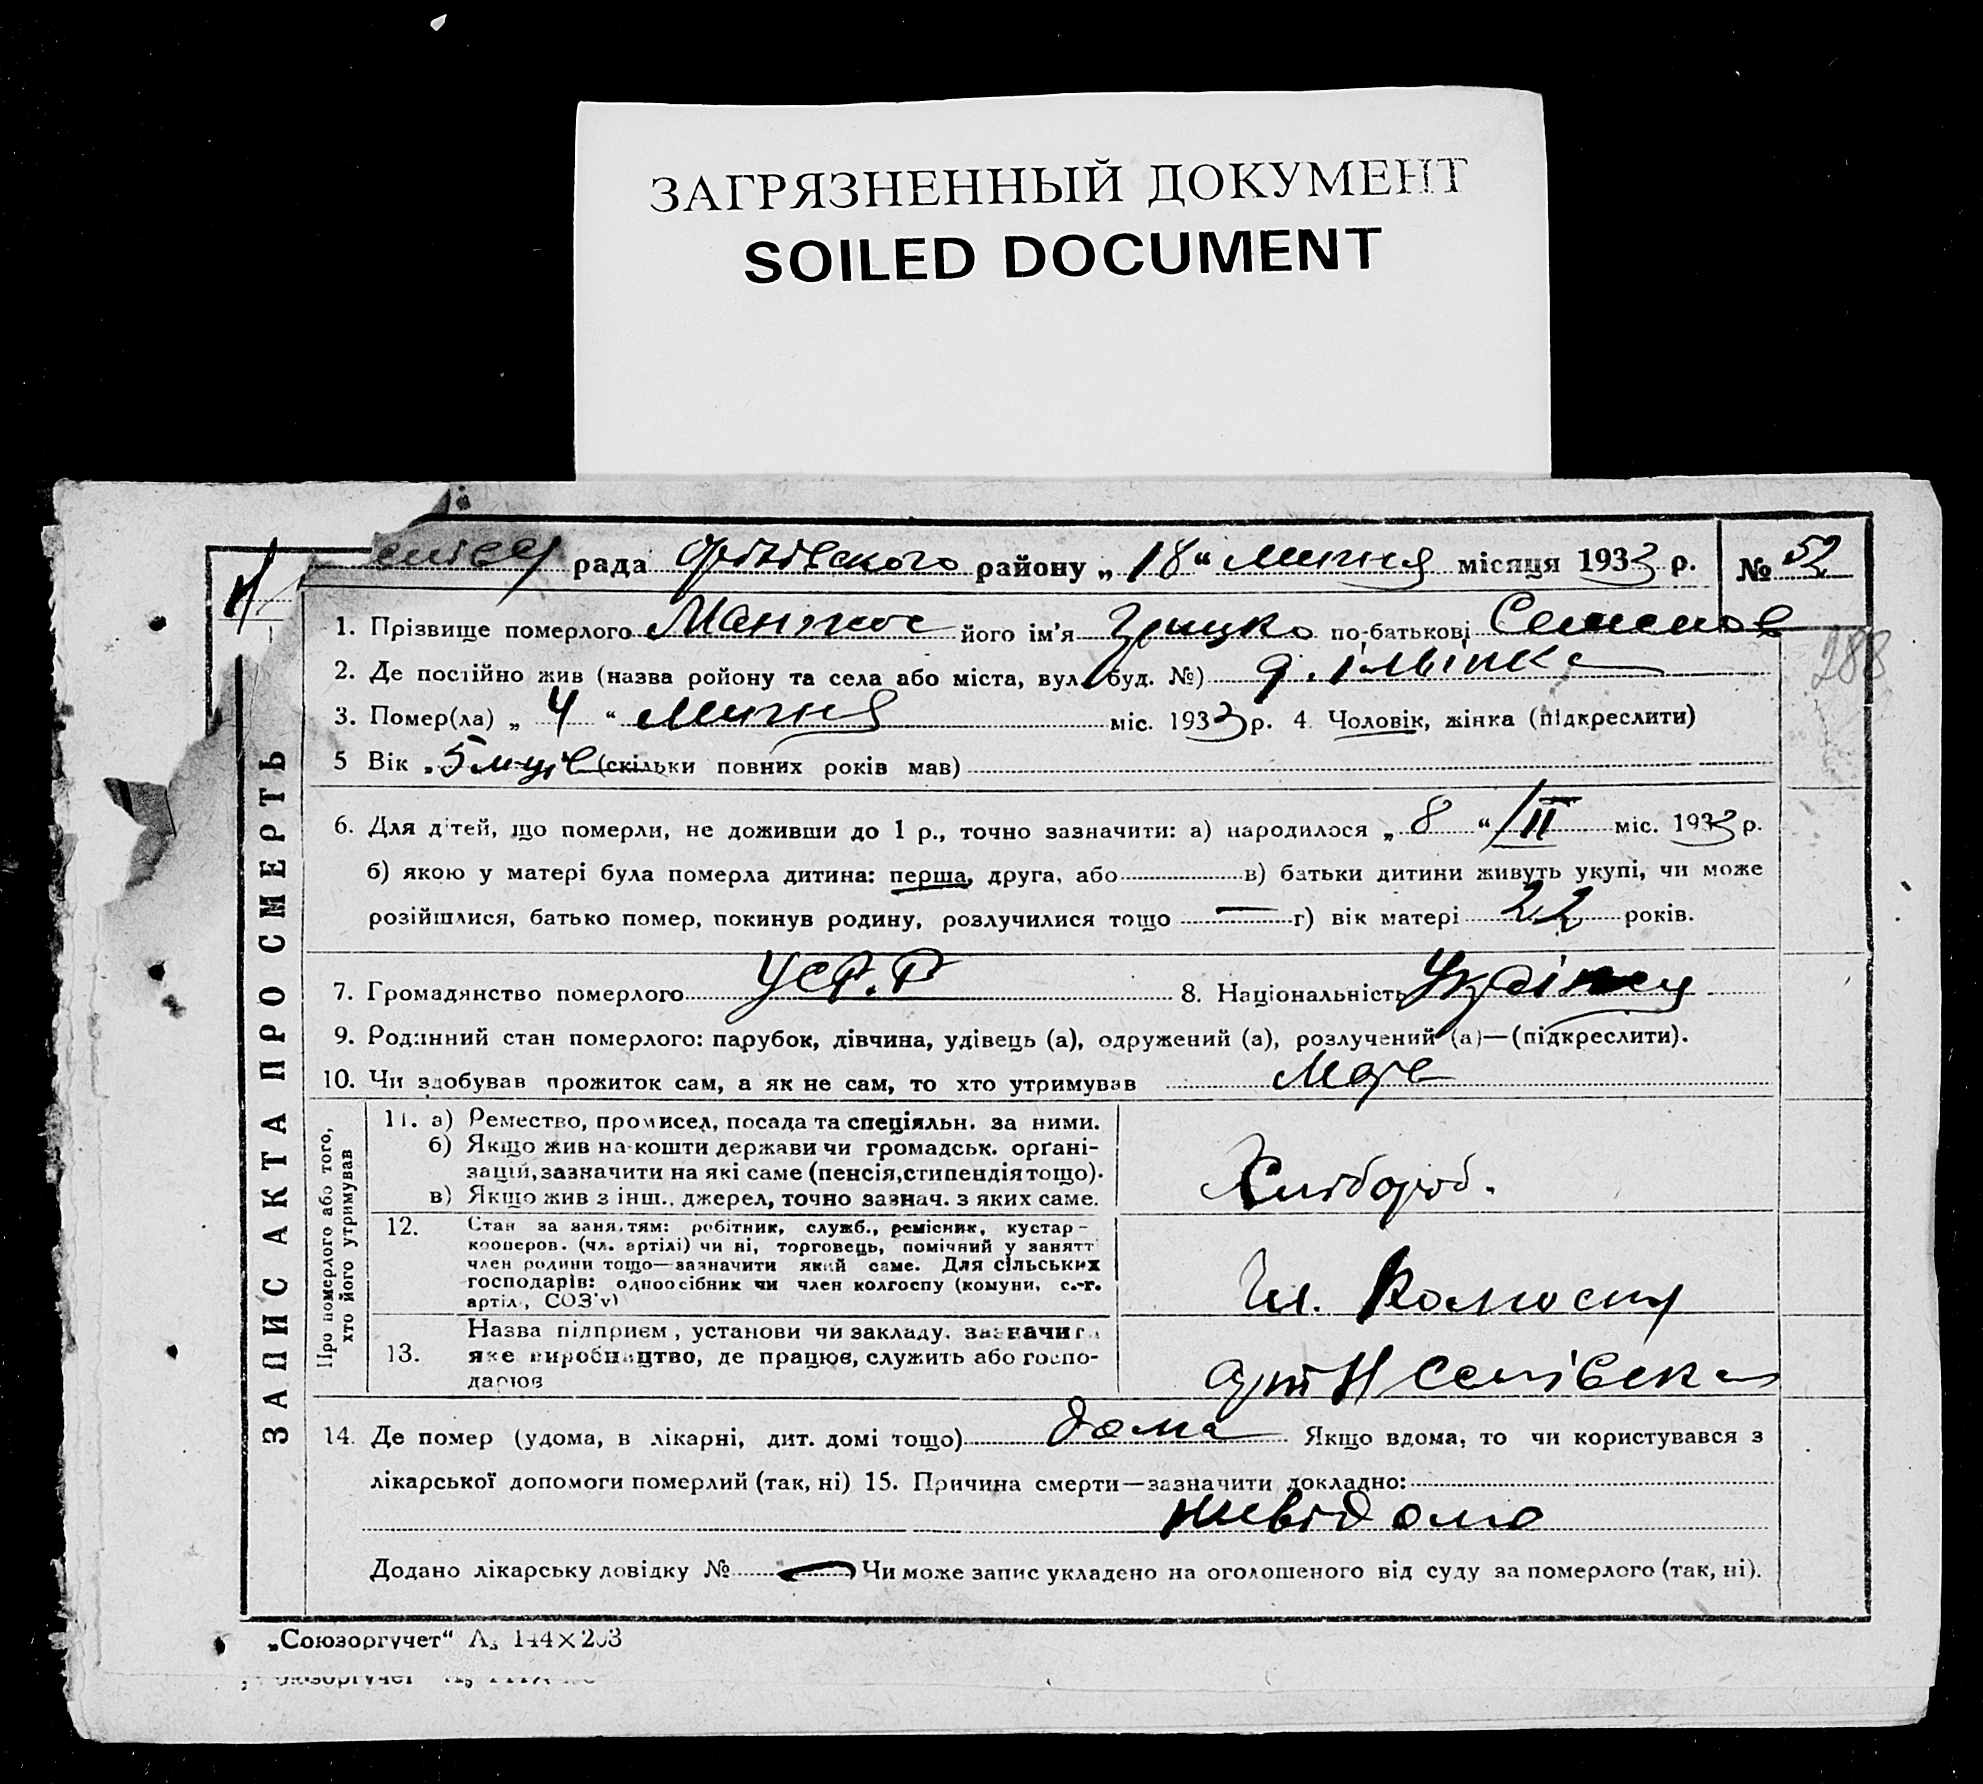 ЗАГРЯЗНЕННЫЙ ДОКУМЕНТ
SOILED DOCUMENT
рада Оріхівского району „ 18 “ липня місяця 1933 р. № 52
1. Прізвище померлого Манжос його ім’я Грицко по-батькові Семенов
288
2. Де постійно жив (назва ройону та села або міста, вул. буд. №)
3. Помер(ла) „ 4 “ липня міс. 1933 р. 4. Чоловік, жінка (підкреслити)
5 Вік „ 5 (скільки повних років мав)
6. Для дітей, що померли, не доживши до 1 р., точно зазначити: а) народилося „ 8 “ II міс. 1933 р.
б) якою у матері була померла дитина: перша, друга, або в) батьки дитини живуть укупі, чи може
розійшлися, батько помер, покинув родину, розлучилися тощо — г) вік матері 22 років.
7. Громадянство померлого УСР.Р 8. Національність
9. Родинний стан померлого: парубок, дівчина, удівець (а), одружений (а), розлучений (а)—(підкреслити).
10. Чи здобував прожиток сам, а як не сам, то хто утримував
ЗАПИС АКТА ПРО СМЕРТЬ
Про померлого або того,
хто його утримував
11. а) Ремество, промисел, посада та спеціяльн. за ними.
б) Якщо жив на кошти держави чи громадськ. орґані-
зацій, зазначити на які саме (пенсія, стипендія тощо).
в) Якщо жив з інш., джерел, точно зазнач. з яких саме.
Хлібороб.
12. Стан за занятям: робітник, служб., ремісник, кустар-
кооперов. (чл. артілі) чи ні, торговець, помічний у занятт
член родини тощо—зазначити який саме. Для сільських
господарів: одноосібник чи член колгоспу (комуни, с.-г.
артіл., СОЗ'у)
Чл. Колгоспу
13. Назва підприєм, установи чи закладу, зазначити
яке виробництво, де працюв, служить або госпо-
дарюв
арт Н Селівска
14. Де помер (удома, в лікарні, дит. домі тощо) дома Якщо вдома, то чи користувався з
лікарської допомоги померлий (так, ні) 15. Причина смерти—зазначити докладно:
невідомо
Додано лікарську довідку № — Чи може запис укладено на оголошеного від суду за померлого (так, ні).
„Союзоргучет“ 144×203